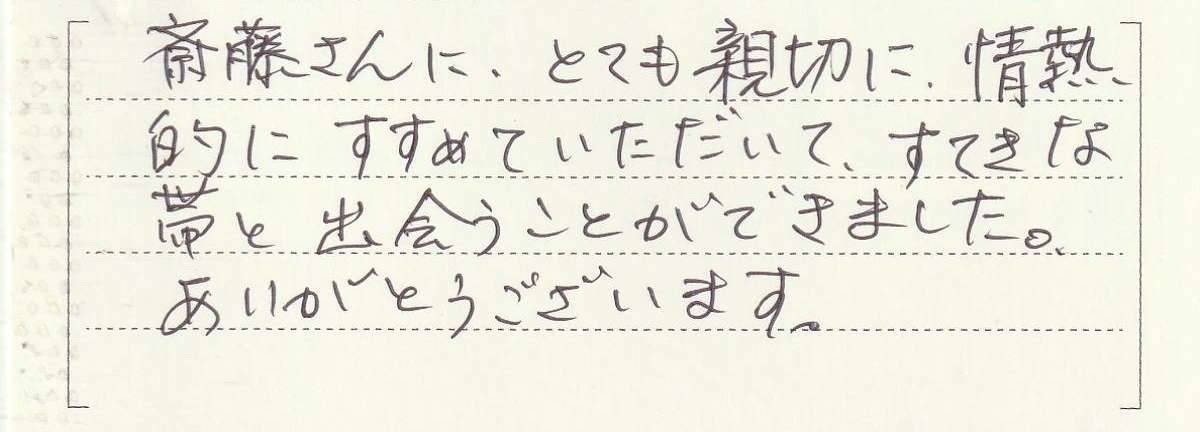 斎藤さんに、とても親切に、情熱
的にすすめていただいて、すてきな
帯と出会うことができました。
ありがとうございます。